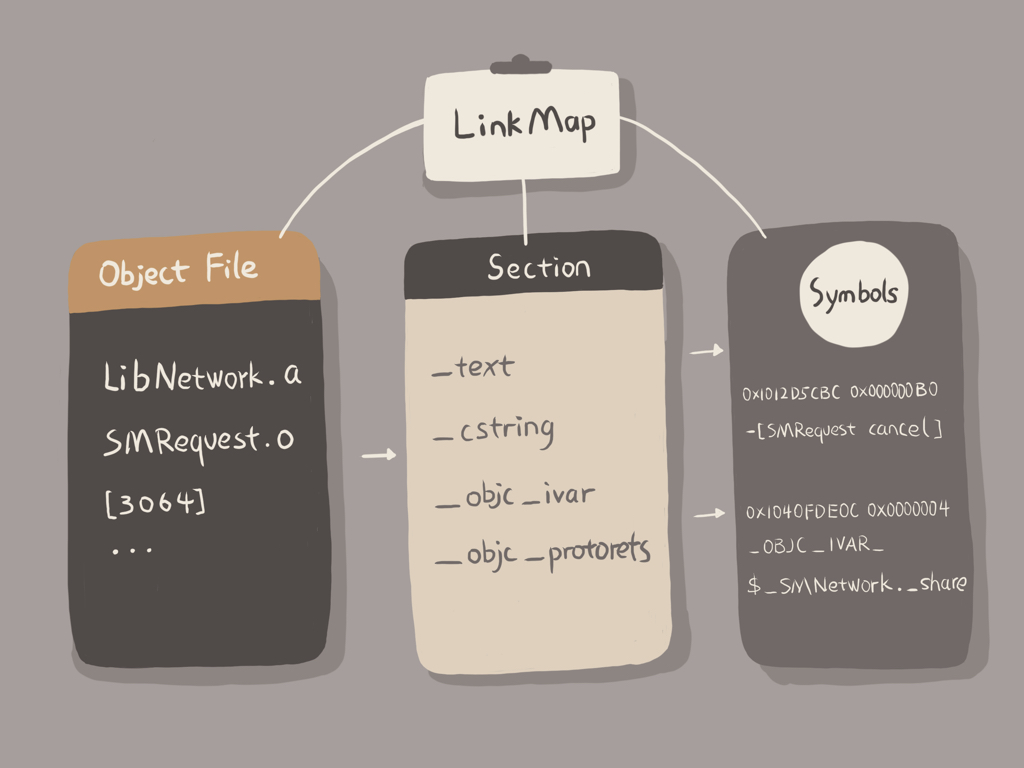 LinkMap
Object File
LibNetwork.a
SMRequest.o
[3064]
...
Section
_text
_cstring
_objc_ivar
_objc_protorets
Symbols
0x1012D5CBC 0x000000B0
-[SMRequest cancel]
0x1040FDE0C 0x0000004
_OBJC_IVAR_
$_SMNetwork._share